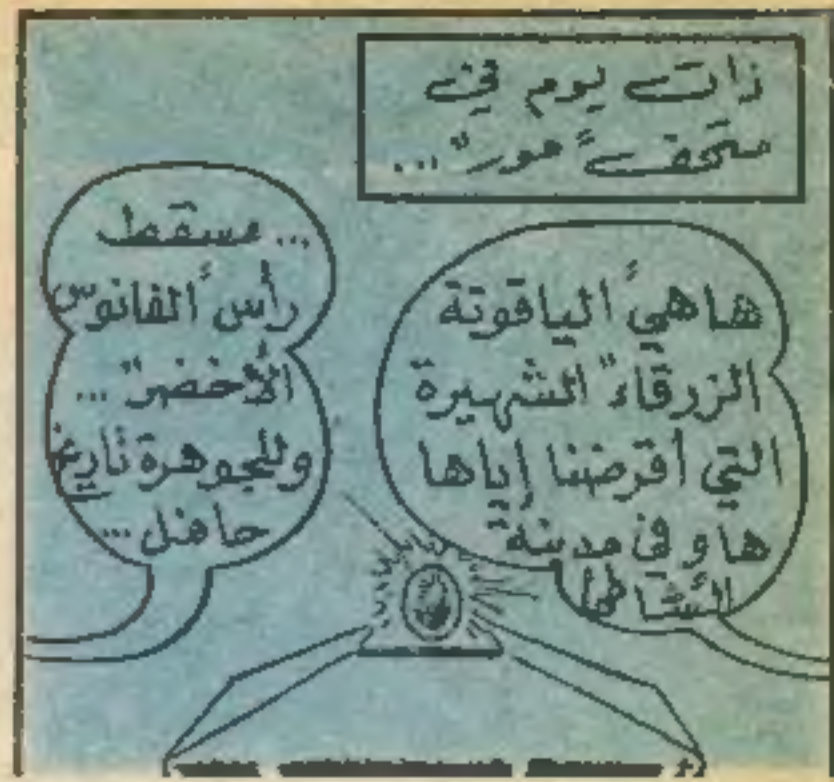 ذات يوم في
متحف "مور" ...
هاهي "الياقوتة
الزرقاء" الشهيرة
التي أقرضنا إياها
هاو في مدينة
الشاطئ
... مسقط
رأس "الفانوس
الأخضر" ...
وللجوهرة تاريخ
حافل ...